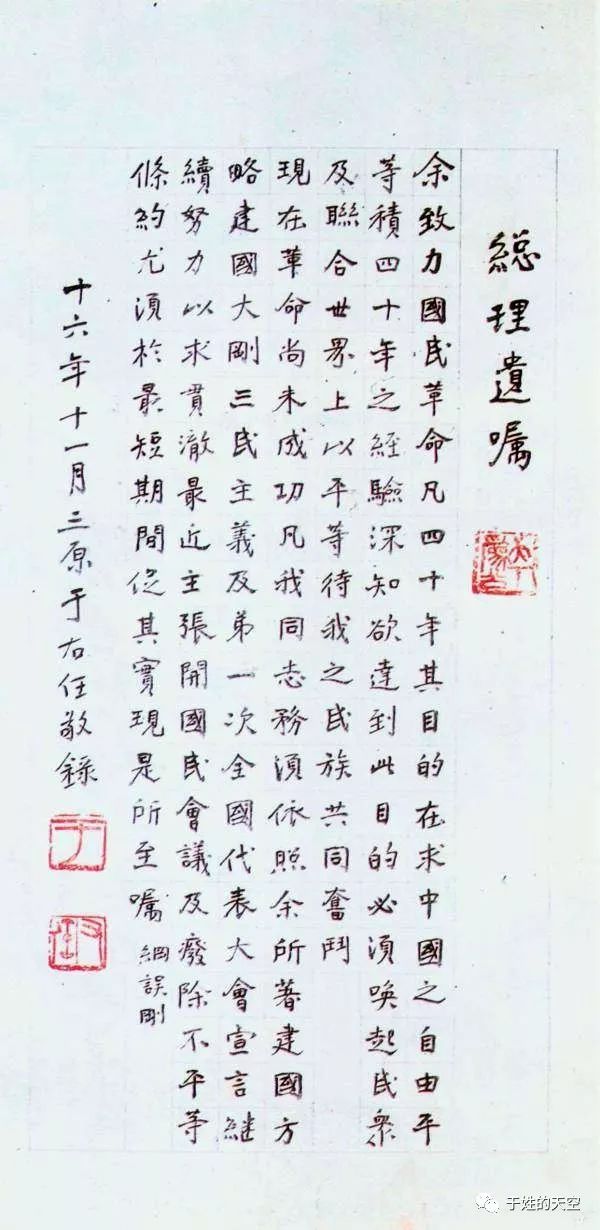 總理遺嘱
余致力國民革命凡四十年其目的在求中國之自由平
等積四十年之經驗深知欲達到此目的必須喚起民衆
及聯合世界上以平等待我之民族共同奮鬥
現在革命尚未成功凡我同志務須依照余所著建國方
略建國大剛三民主義及第一次全國代表大會宣言繼
續努力以求貫澈最近主張開國民會議及廢除不平等
條約尤須於最短期間促其實現是所至嘱
綱誤剛
十六年十一月三原于右任敬錄
于姓的天空